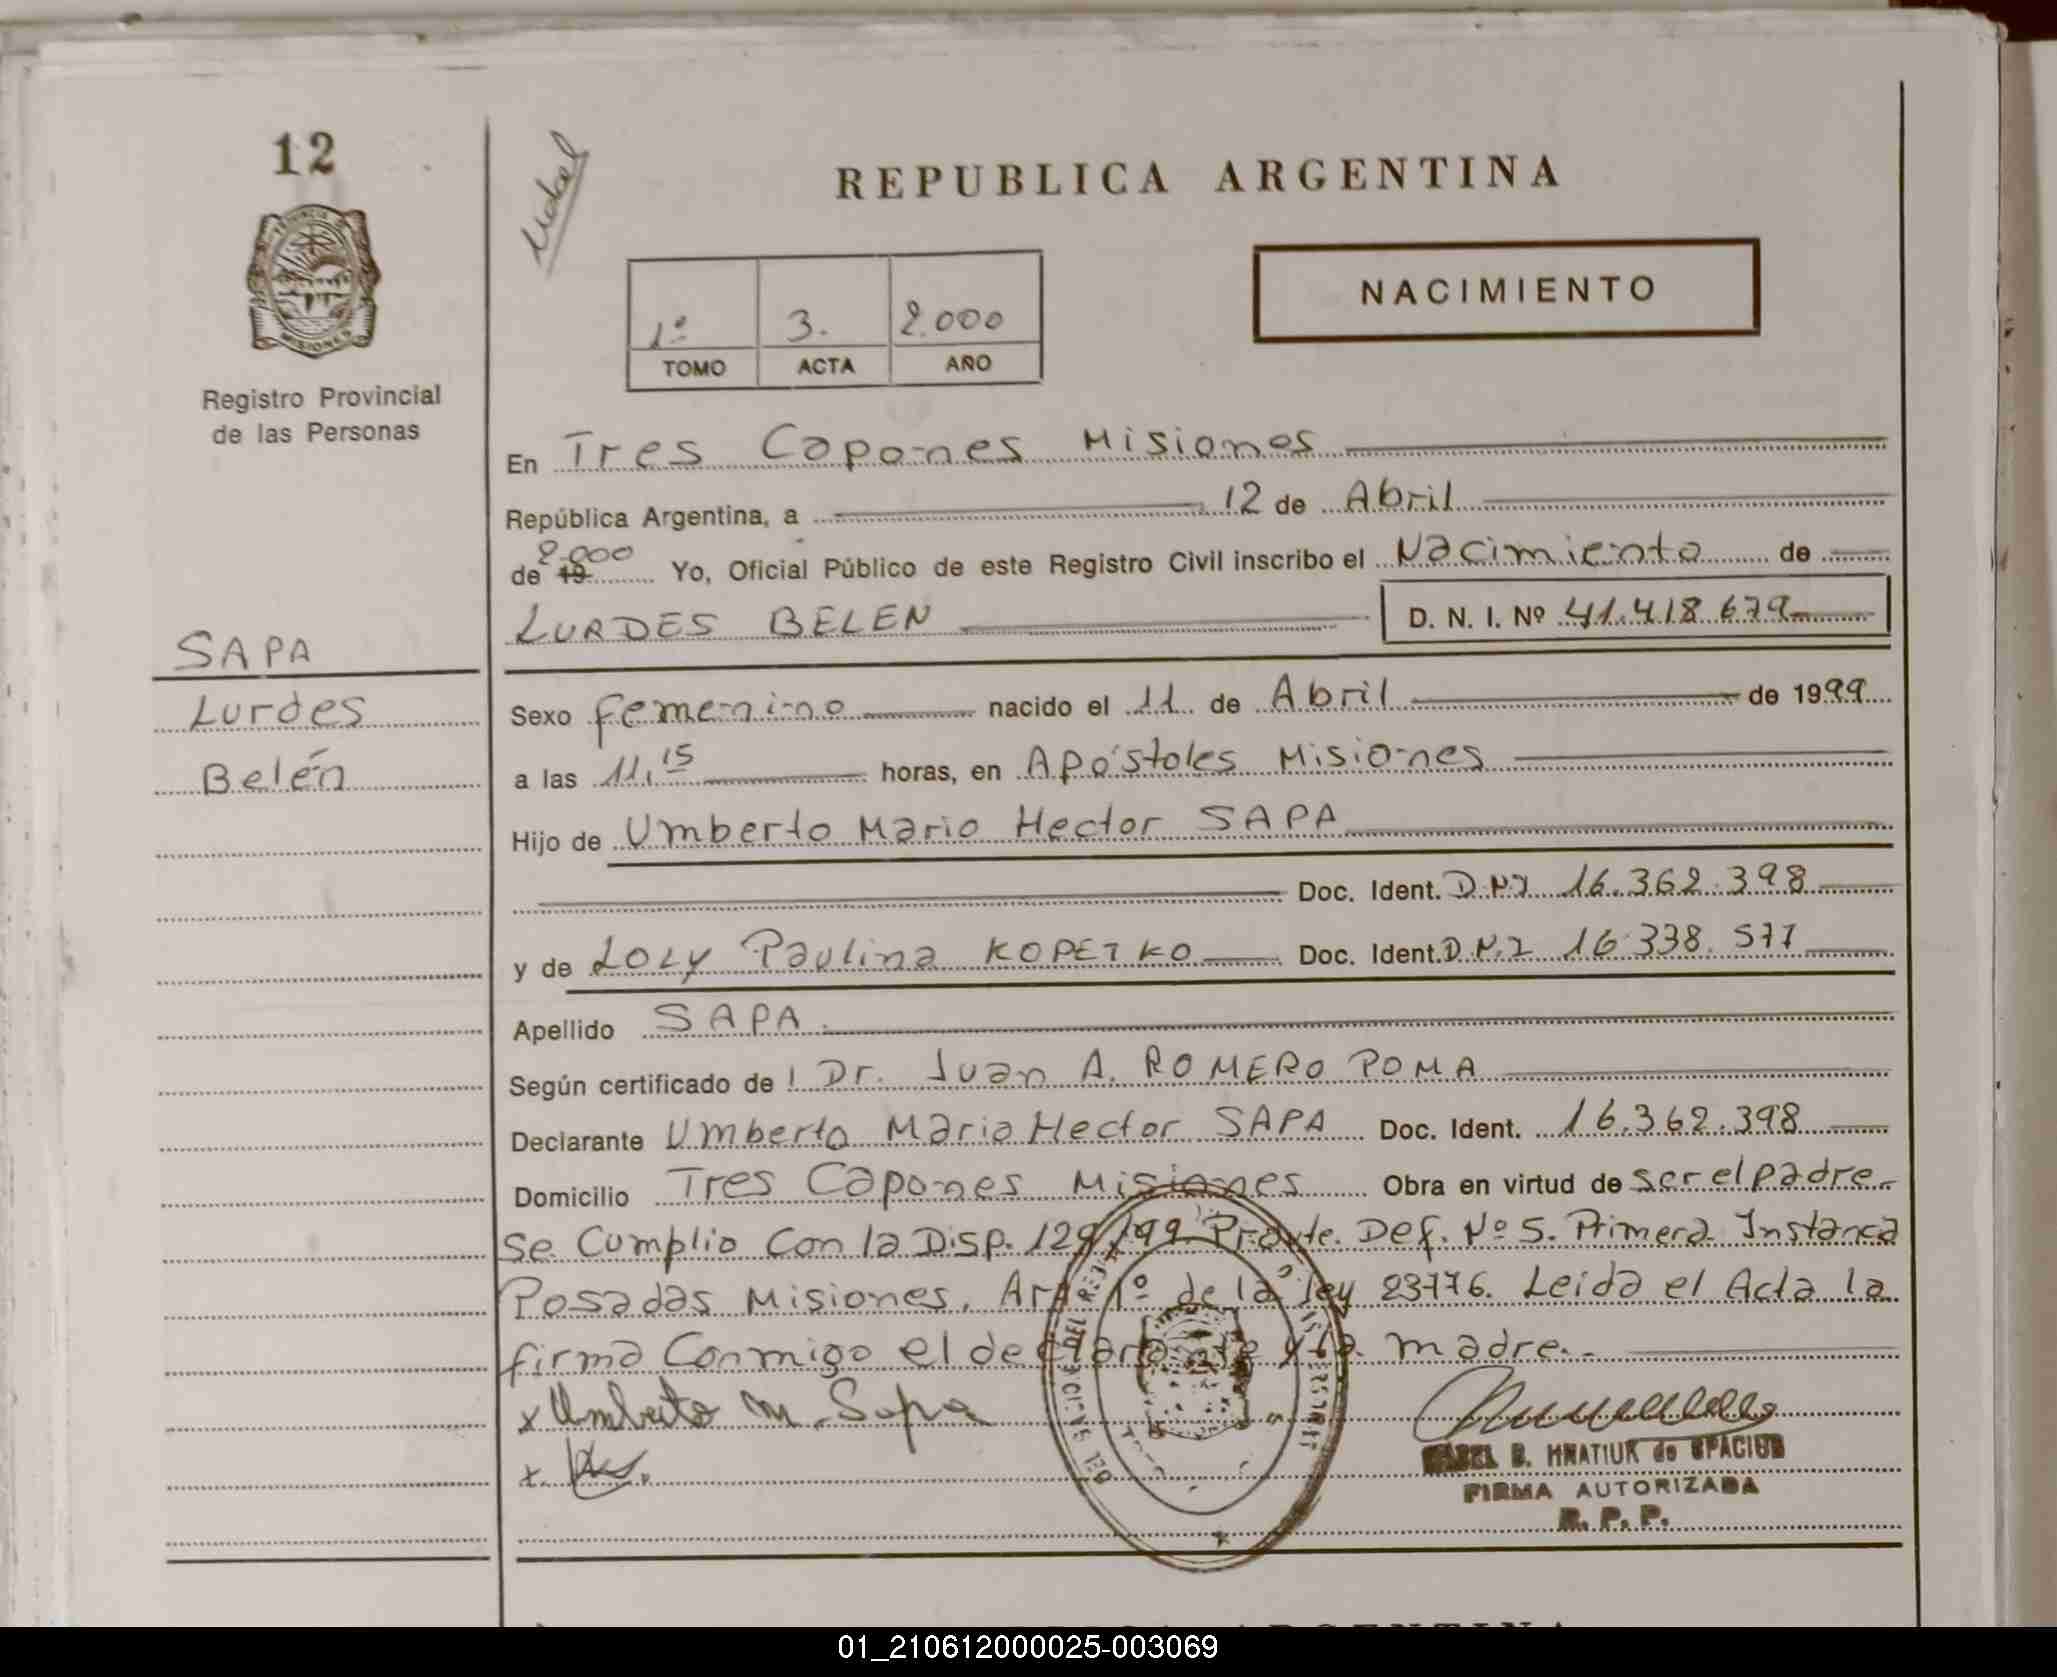 12
Registro Provincial
de las Personas
SAPA
Lurdes
Belén
REPUBLICA ARGENTINA
NACIMIENTO
1º 3. 2.000
TOMO ACTA AÑO
En Tres Capones Misiones
República Argentina, a 12 de Abril
de 19 2.000 Yo, Oficial Público de este Registro Civil inscribo el Nacimiento de
LURDES BELEN D. N. I. Nº 41.418.679
Sexo femenino nacido el 11 de Abril de 1999
a las 11,15 horas, en Apóstoles Misiones
Hijo de Umberto Mario Hector SAPA
Doc. Ident. D.N.I 16.362.398
y de LOLY Paulina KOPETKO Doc. Ident. D.N.I 16.338.577
Apellido SAPA
Según certificado de l Dr. Juan A. ROMERO POMA
Declarante Umberto Mario Hector SAPA Doc. Ident. 16.362.398
Domicilio Tres Capones Misiones Obra en virtud de ser el padre.
Se Cumplio Con la Disp. 129/99 Def. Nº 5. Primera Instancia
Posadas Misiones, Art. 1º de la ley 23776. Leida el Acta la
firma Conmigo el declarante y la madre.
x Umberto M. Sapa
x
B. HNATIUK de SPACIUK
FIRMA AUTORIZADA
R. P. P.
01_210612000025-003069